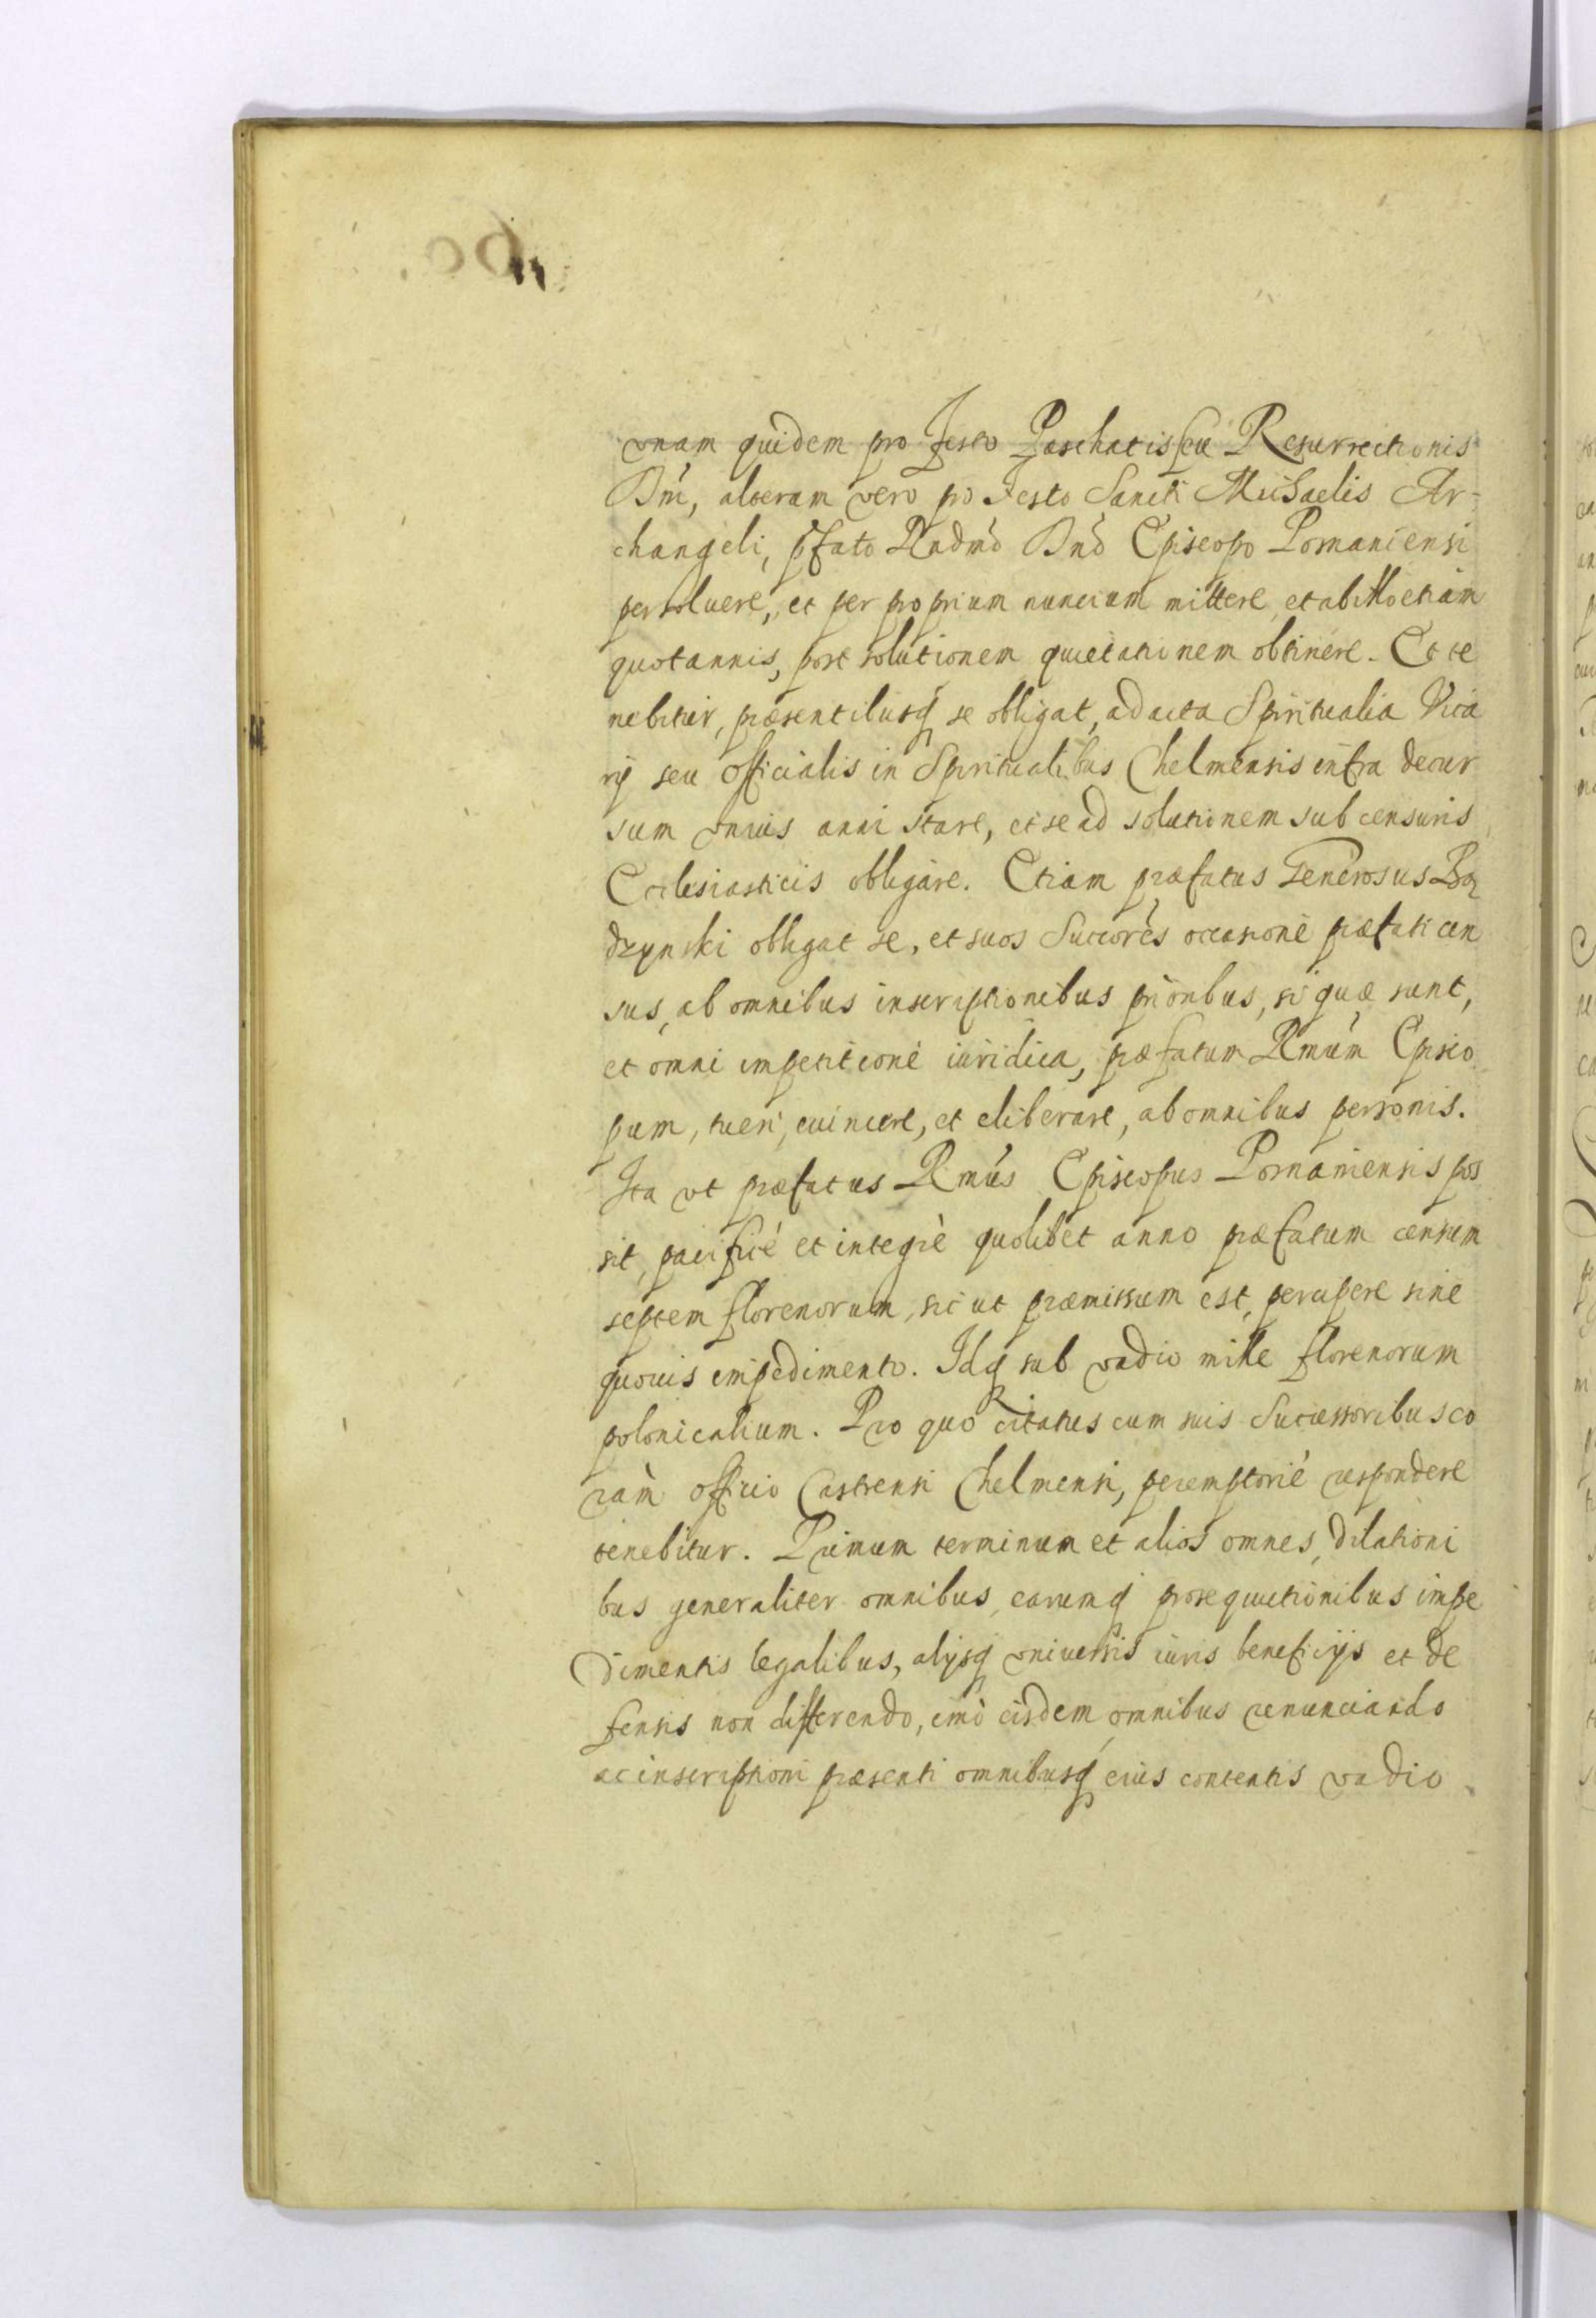 vnam quidem pro Festo Paschatis seu Resurrectionis
Dni, alteram vero pro Festo Sancti Michaelis Ar-
changeli, pfato Rndmo Dno Episcopo Posnaniensi
persoluere, et per proprium nuncium mittere, et ab illo etiam
quotannis, post solutionem quietationem obtinere. Et te
nebitur, præsentibusq se obligat, ad acta Spiritualia Vica
rij seu Officialis in Spiritualibus Chelmensis infra decur
sum vnius anni stare, et se ad solutionem sub censuris
Ecclesiasticis obligare. Etiam præfatus Generosus Bą
dzynski obligat se, et suos Succores occasione præfati cen
sus, ab omnibus inscriptionibus prioribus, si quæ sunt,
et omni impetitione iuridica, præfatum Rmum Episco
pum, tueri, euincere, et eliberare, ab omnibus personis.
Ita vt præfatus Rmus Episcopus Posnaniensis pos
sit, pacificè et integrè quolibet anno præfatum censum
septem florenorum, sic ut præmissum est, percipere sine
quouis impedimento. Idq sub vadio mille florenorum
polonicalium. Pro quo citatus cum suis Successoribus co
ràm officio Castrensi Chelmensi, peremptoriè respondere
tenebitur. Primum terminum et alios omnes, dilationi
bus generaliter omnibus, earumq prosequutionibus impe
dimentis legalibus, alijsq vniuersis iuris beneficijs et de
fensis non differendo, imò eisdem omnibus renunciando
ac inscriptioni præsenti omnibusq eius contentis vadio